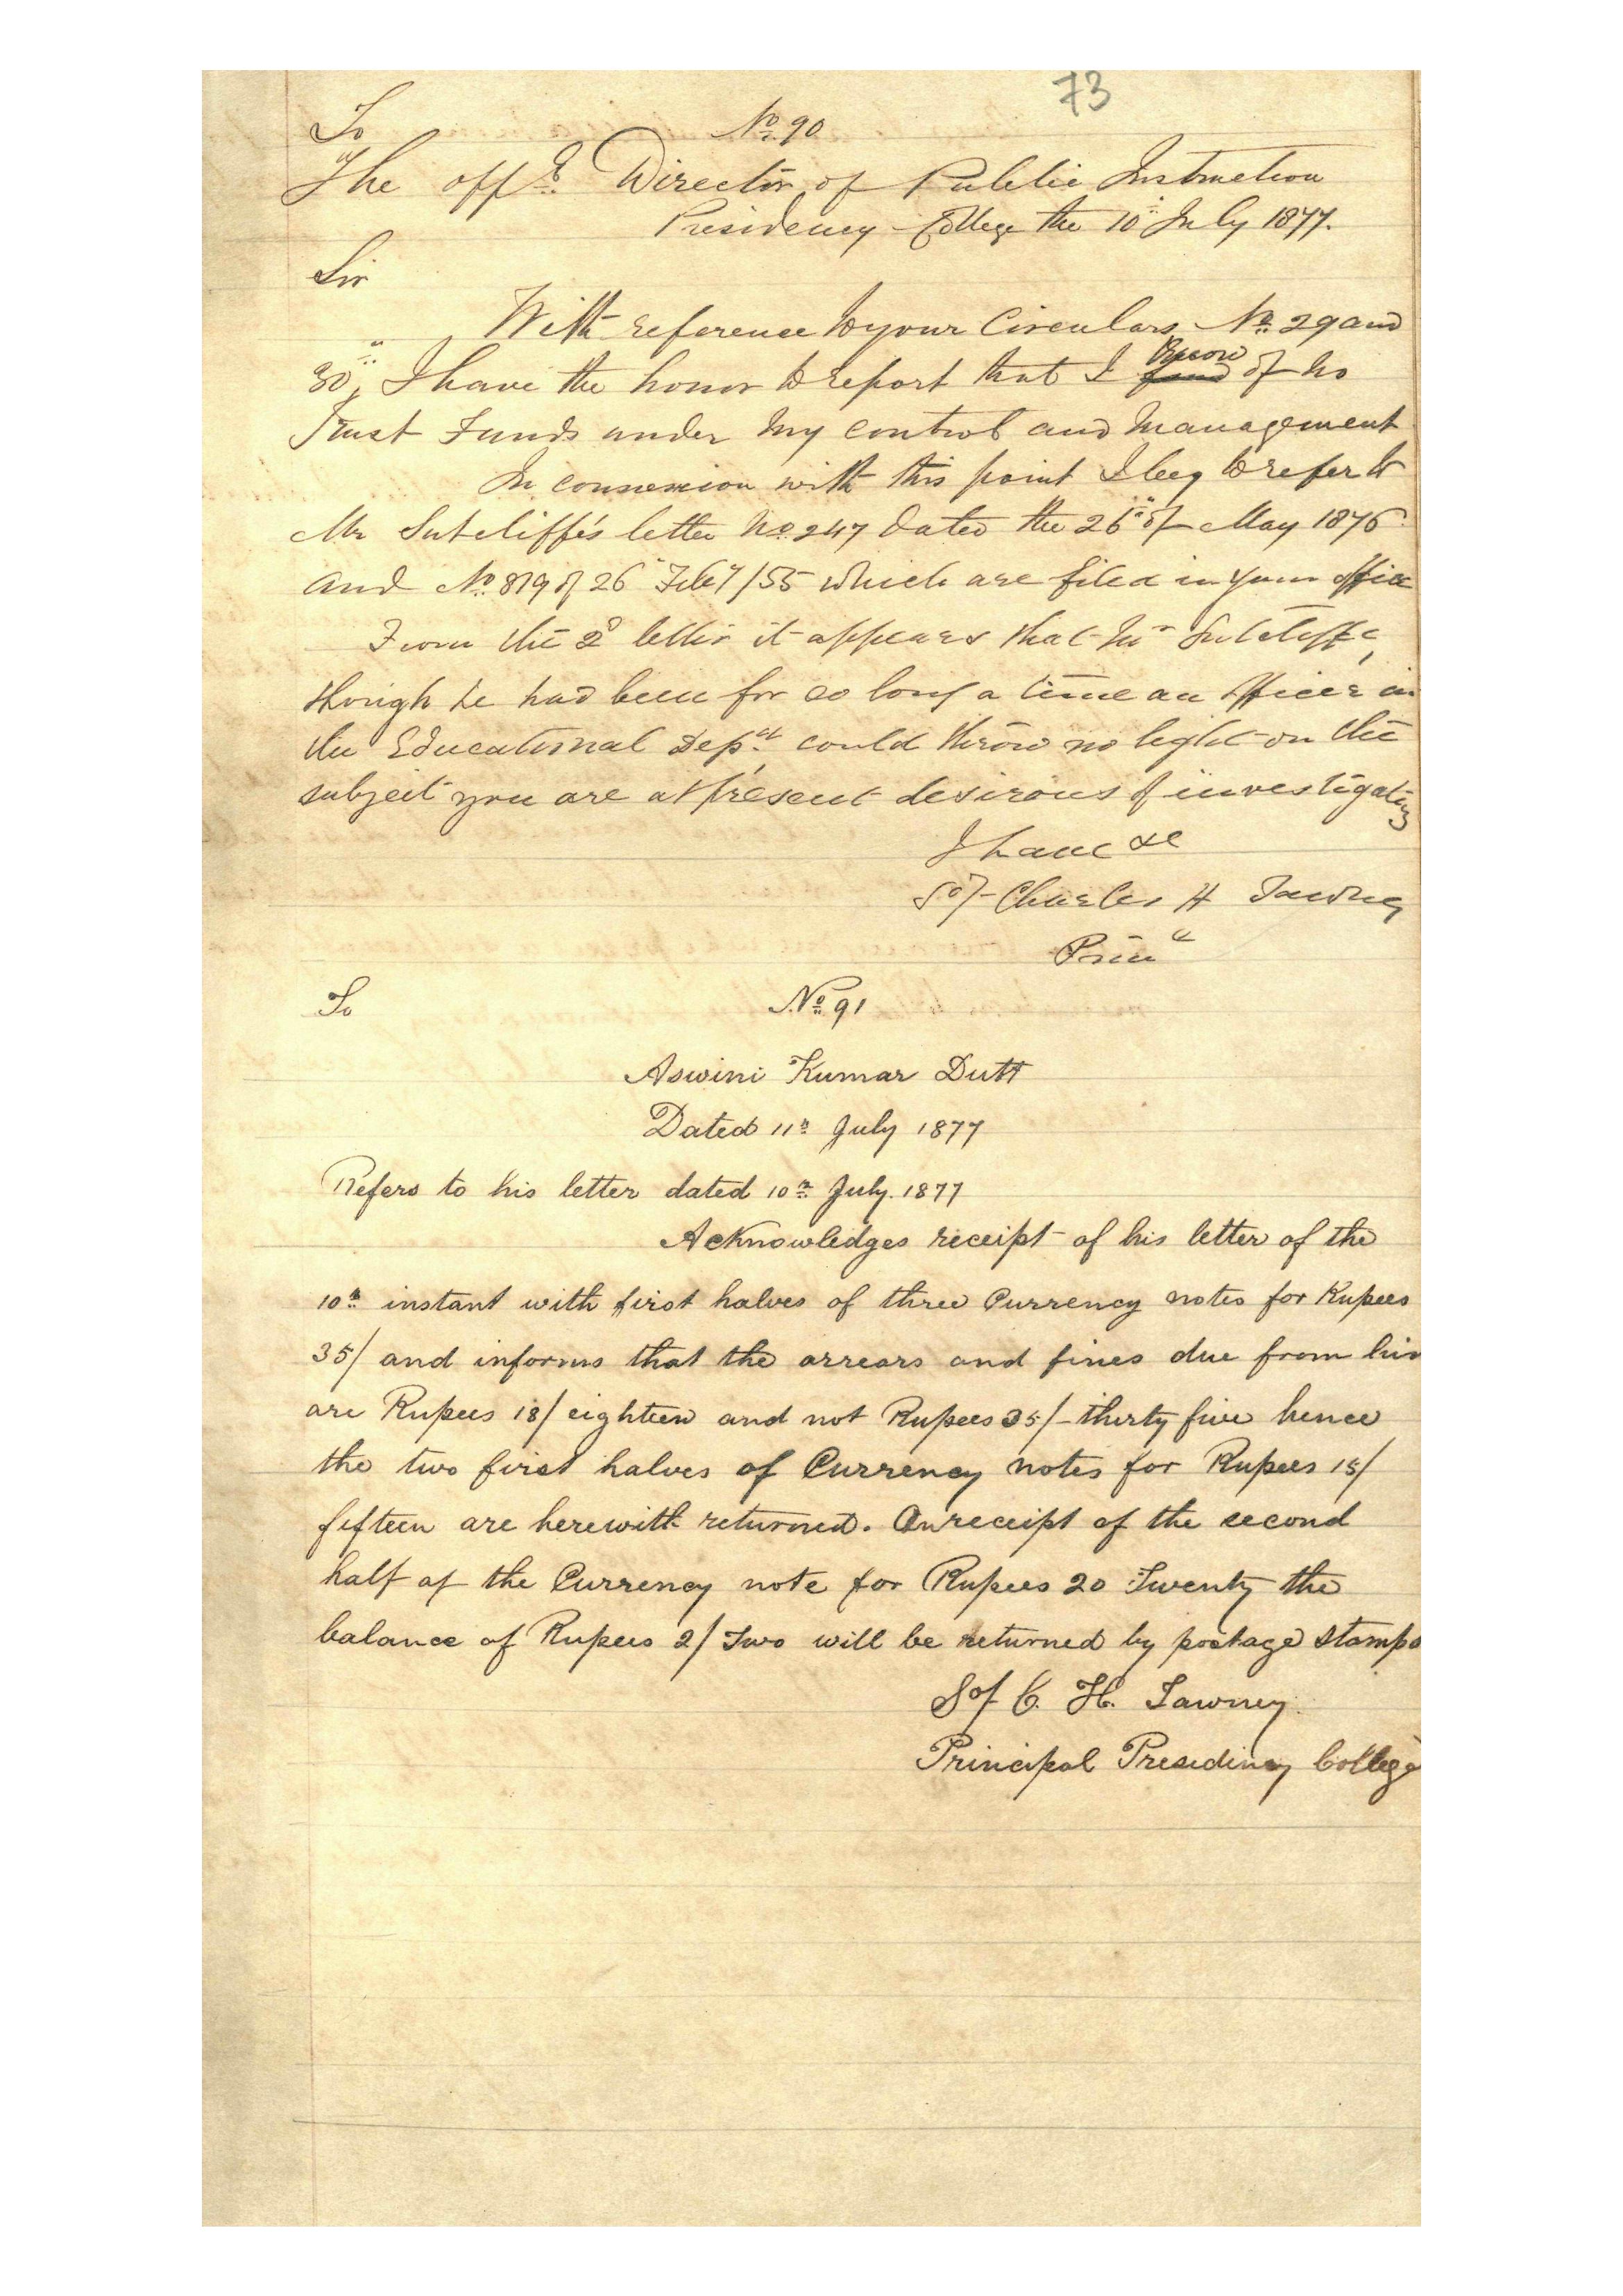 73
To
No. 90
The offg. Director of Public Instruction
Presidency College the 10th July 1877.
Sir
With reference to your Circulars No. 29 and
30, I have the honor to report that I know of no
Trust Funds under my control and management
In connexion with this point I beg to refer to
Mr Sutcliffe's letter No. 247 dated the 26th of May 1876
and No. 819 of 26 Feby/55 which are filed in your office
From the 2d letter it appears that Mr Sutcliffe,
though he had been for so long a time an officer in
the Educational Depmt. could throw no light on the
subject you are at present desirous of investigating
I have &c
Sd/- Charles H Tawney
Princ
To
No. 91
Aswini Kumar Dutt
Dated 11th July 1877
Refers to his letter dated 10th July. 1877
Acknowledges receipt of his letter of the
10th instant with first halves of three Currency notes for Rupees
35/ and informs that the arrears and fines due from him
are Rupees 18/ eighteen and not Rupees 35/- thirty five hence
the two first halves of Currency notes for Rupees 15/
fifteen are herewith returned. On receipt of the second
half of the Currency note for Rupees 20 Twenty the
balance of Rupees 2/ Two will be returned by postage stamps
Sd/ C. H. Tawney
Principal Presidency College